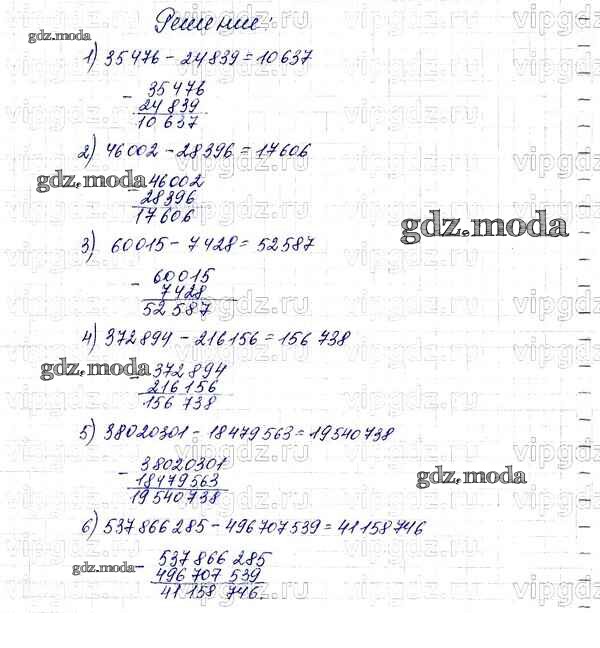 Решение:
gdz.moda
1) 35476 - 24839 = 10637
- 35476
24839
10637
2) 46002 - 28396 = 17606
gdz.moda
- 46002
28396
17606
gdz.moda
3) 60015 - 7428 = 52587
- 60015
7428
52587
4) 372894 - 216156 = 156 738
gdz.moda
- 372894
216156
156 738
5) 38020301 - 18479563 = 19540738
- 38020301
18479563
19540738
gdz.moda
6) 537 866 285 - 496 707 539 = 41 158 746
gdz.moda
- 537 866 285
496 707 539
41 158 746.
vipgdz.ru